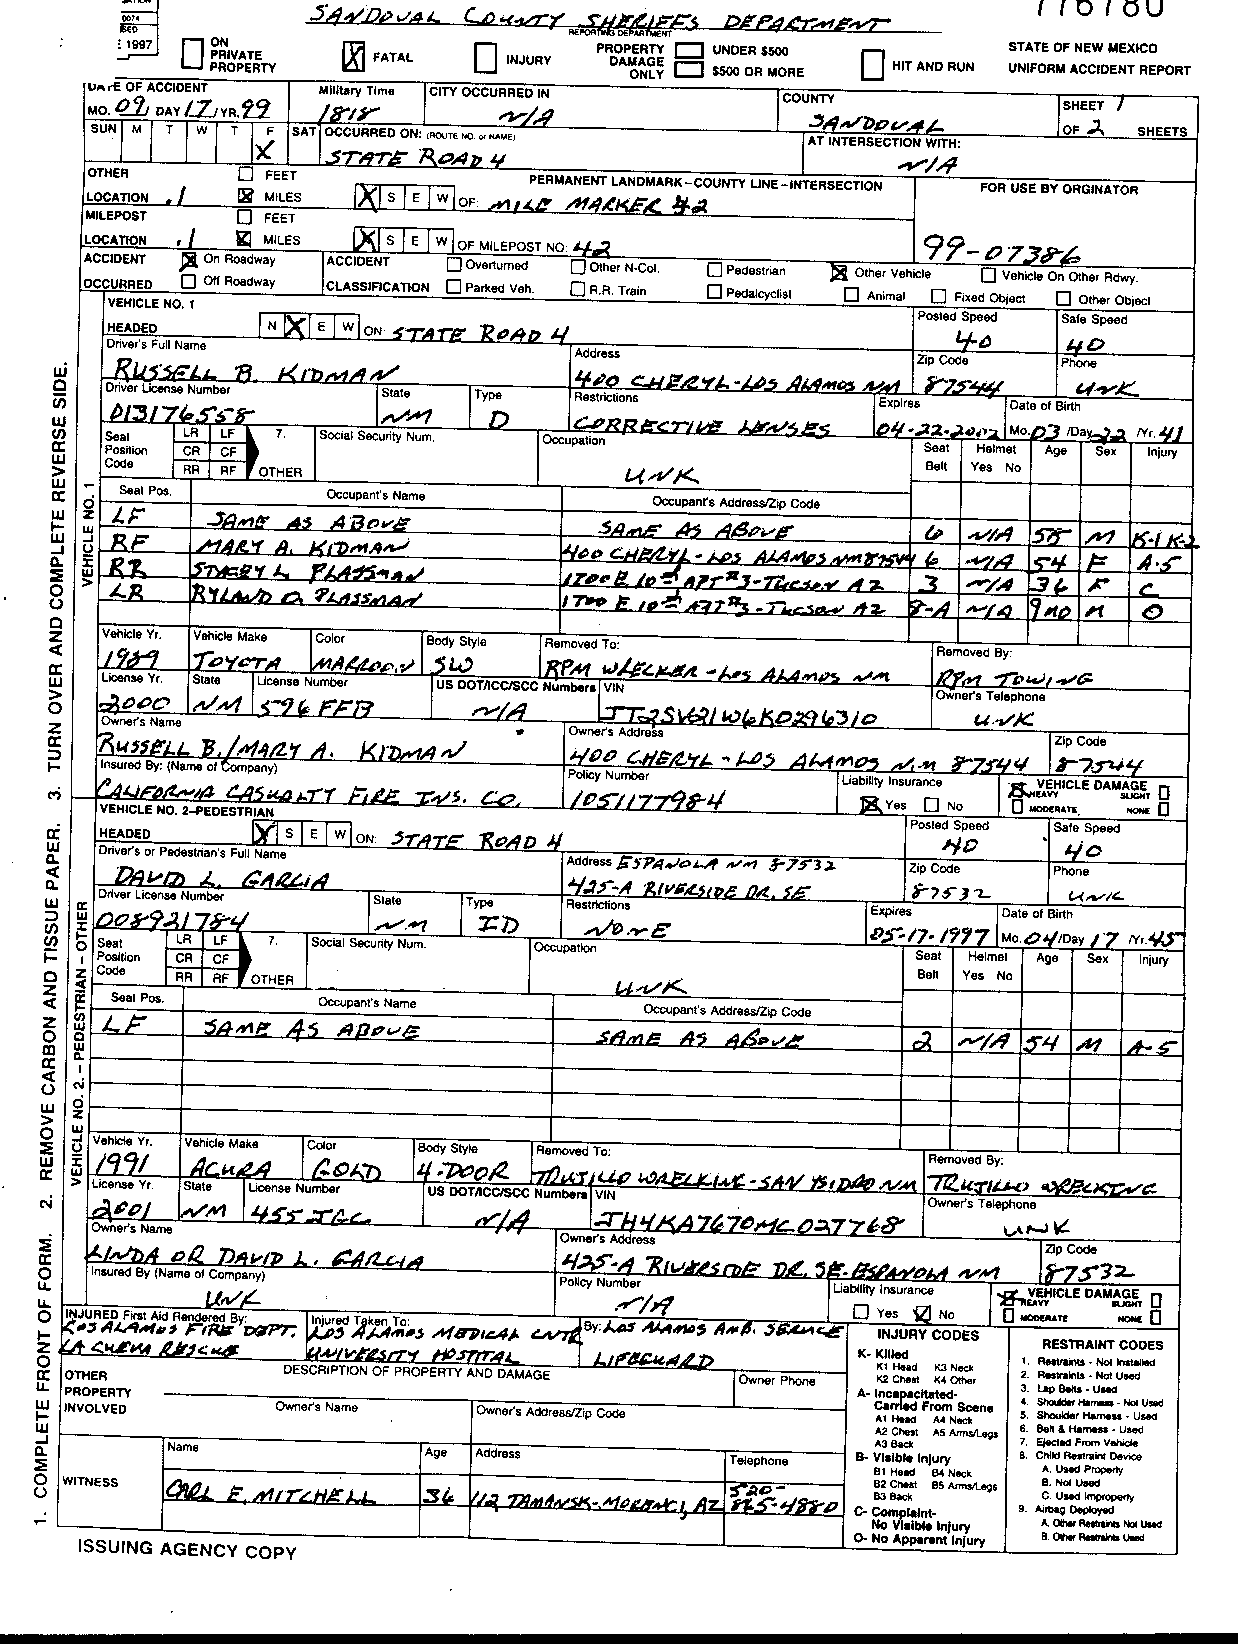 SANDOVAL COUNTY SHERIFFS DEPARTMENT
REPORTING DEPARTMENT
1997
ON PRIVATE PROPERTY
FATAL
INJURY
PROPERTY DAMAGE ONLY
UNDER $500
$500 OR MORE
HIT AND RUN
STATE OF NEW MEXICO
UNIFORM ACCIDENT REPORT
DATE OF ACCIDENT
MO. 09/ DAY 17/ YR. 99
Military Time
1818
CITY OCCURRED IN
N/A
COUNTY
SANDOVAL
SHEET 1
OF 2 SHEETS
SUN M T W T F SAT
X
OCCURRED ON: (ROUTE NO. or NAME)
STATE ROAD 4
AT INTERSECTION WITH:
N/A
OTHER LOCATION .1
FEET
MILES
X S E W OF: MILE MARKER 42
PERMANENT LANDMARK-COUNTY LINE-INTERSECTION
FOR USE BY ORGINATOR
99-07386
MILEPOST LOCATION .1
FEET
MILES
X S E W OF MILEPOST NO: 42
ACCIDENT OCCURRED
On Roadway
Off Roadway
ACCIDENT CLASSIFICATION
Overturned
Other N-Col.
Pedestrian
Other Vehicle
Vehicle On Other Rdwy.
Parked Veh.
R.R. Train
Pedalcyclist
Animal
Fixed Object
Other Object
VEHICLE NO. 1
HEADED N X E W ON: STATE ROAD 4
Posted Speed
40
Safe Speed
40
Driver's Full Name
RUSSELL B. KIDMAN
Address
400 CHERYL-LOS ALAMOS NM
Zip Code
87544
Phone
UNK
Driver License Number
013176558
State
NM
Type
D
Restrictions
CORRECTIVE LENSES
Expires
04-22-2002
Date of Birth
Mo. 03 /Day 22 /Yr. 41
Seat Position Code
LR LF
CR CF
RR RF
7. OTHER
Social Security Num.
Occupation
UNK
Seat Belt
Helmet Yes No
Age
Sex
Injury
Seat Pos.
Occupant's Name
Occupant's Address/Zip Code
LF SAME AS ABOVE SAME AS ABOVE 6 N/A 58 M K-1 K-2
RF MARY A. KIDMAN 400 CHERYL-LOS ALAMOS NM 87544 6 N/A 54 F A-5
RR STACEY L. PLASSMAN 1700 E 10th APT #3-TUCSON AZ 3 N/A 36 F C
LR RYLAND O. PLASSMAN 1700 E 10th APT #3-TUCSON AZ 8-A N/A 9mo M O
Vehicle Yr.
1989
Vehicle Make
TOYOTA
Color
MAROON
Body Style
SW
Removed To:
RPM WRECKER-LOS ALAMOS NM
Removed By:
RPM TOWING
License Yr.
2000
State
NM
License Number
596 FFB
US DOT/ICC/SCC Numbers
N/A
VIN
JT2SV21W6K0296310
Owner's Telephone
UNK
Owner's Name
RUSSELL B./MARY A. KIDMAN
Owner's Address
400 CHERYL-LOS ALAMOS N.M 87544
Zip Code
87544
Insured By: (Name of Company)
CALIFORNIA CASUALTY FIRE INS. CO.
Policy Number
1051177984
Liability Insurance
Yes No
VEHICLE DAMAGE
HEAVY SLIGHT
MODERATE NONE
VEHICLE NO. 2-PEDESTRIAN
HEADED X S E W ON: STATE ROAD 4
Posted Speed
40
Safe Speed
40
Driver's or Pedestrian's Full Name
DAVID L. GARCIA
Address ESPANOLA NM 87532
425-A RIVERSIDE DR. SE
Zip Code
87532
Phone
UNK
Driver License Number
008921784
State
NM
Type
ID
Restrictions
NONE
Expires
05-17-1997
Date of Birth
Mo. 04 /Day 17 /Yr. 45
Seat Position Code
LR LF
CR CF
RR RF
7. OTHER
Social Security Num.
Occupation
UNK
Seat Belt
Helmet Yes No
Age
Sex
Injury
Seat Pos.
Occupant's Name
Occupant's Address/Zip Code
LF SAME AS ABOVE SAME AS ABOVE 2 N/A 54 M A-5
Vehicle Yr.
1991
Vehicle Make
ACURA
Color
GOLD
Body Style
4-DOOR
Removed To:
TRUJILLO WRECKING-SAN YSIDRO NM
Removed By:
TRUJILLO WRECKING
License Yr.
2001
State
NM
License Number
455 JGC
US DOT/ICC/SCC Numbers
N/A
VIN
JH4KA7670MC027768
Owner's Telephone
UNK
Owner's Name
LINDA OR DAVID L. GARCIA
Owner's Address
425-A RIVERSIDE DR. SE. ESPANOLA NM
Zip Code
87532
Insured By (Name of Company)
UNK
Policy Number
N/A
Liability Insurance
Yes No
VEHICLE DAMAGE
HEAVY SLIGHT
MODERATE NONE
INJURED First Aid Rendered By:
LOS ALAMOS FIRE DEPT.
LA CUEVA RESCUE
Injured Taken To:
LOS ALAMOS MEDICAL CNTR
UNIVERSITY HOSPITAL
By: LOS ALAMOS AMB. SERVICE
LIFEGUARD
OTHER PROPERTY INVOLVED
DESCRIPTION OF PROPERTY AND DAMAGE
Owner Phone
Owner's Name
Owner's Address/Zip Code
WITNESS
Name
CARL E. MITCHELL
Age
36
Address
112 TAMANSK-MORENCI, AZ
Telephone
520-
865-4880
INJURY CODES
K- Killed
K1 Head K3 Neck
K2 Chest K4 Other
A- Incapacitated-
Carried From Scene
A1 Head A4 Neck
A2 Chest A5 Arms/Legs
A3 Back
B- Visible Injury
B1 Head B4 Neck
B2 Chest B5 Arms/Legs
B3 Back
C- Complaint-
No Visible Injury
O- No Apparent Injury
RESTRAINT CODES
1. Restraints - Not Installed
2. Restraints - Not Used
3. Lap Belts - Used
4. Shoulder Harness - Not Used
5. Shoulder Harness - Used
6. Belt & Harness - Used
7. Ejected From Vehicle
8. Child Restraint Device
A. Used Properly
B. Not Used
C. Used Improperly
9. Airbag Deployed
A. Other Restraints Not Used
B. Other Restraints Used
ISSUING AGENCY COPY
1. COMPLETE FRONT OF FORM. 2. REMOVE CARBON AND TISSUE PAPER. 3. TURN OVER AND COMPLETE REVERSE SIDE.
VEHICLE NO. 1
VEHICLE NO. 2. - PEDESTRIAN - OTHER